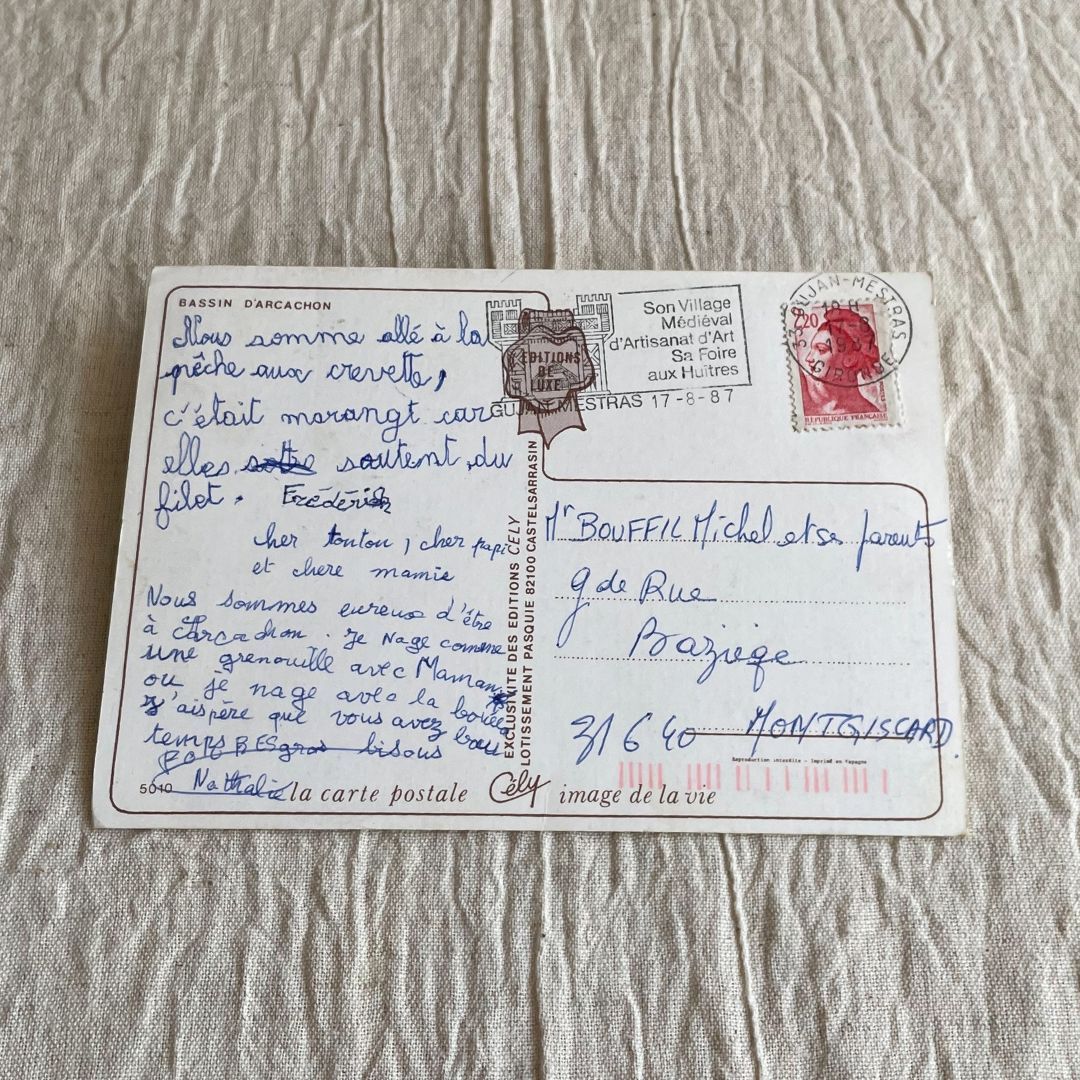 BASSIN D'ARCACHON
Nous somme allé à la
pêche aux crevette,
c'était marangt car
elles sautent du
filet. Frédéric
cher tonton, cher papi
et chere mamie
Nous sommes eureux d'être
à Arcachon. Je Nage comme
une grenouille avec Maman
ou je nage avec la bouée
J'aispère que vous avez beau
temps gros bisous
Nathalie
5010
la carte postale Cély image de la vie
EXCLUSIVITE DES EDITIONS CELY
LOTISSEMENT PASQUIE 82100 CASTELSARRASIN
EDITIONS
DE
LUXE
Son Village
Médiéval
d'Artisanat d'Art
Sa Foire
aux Huîtres
GUJAN MESTRAS 17-8-87
33 GUJAN-MESTRAS
1987
GIRONDE
2,20
REPUBLIQUE FRANÇAISE
Mr BOUFFIL Michel et ses parents
9 de Rue
Baziege
31640 MONTGISCARD.
Reproduction interdite - Imprimé en Espagne